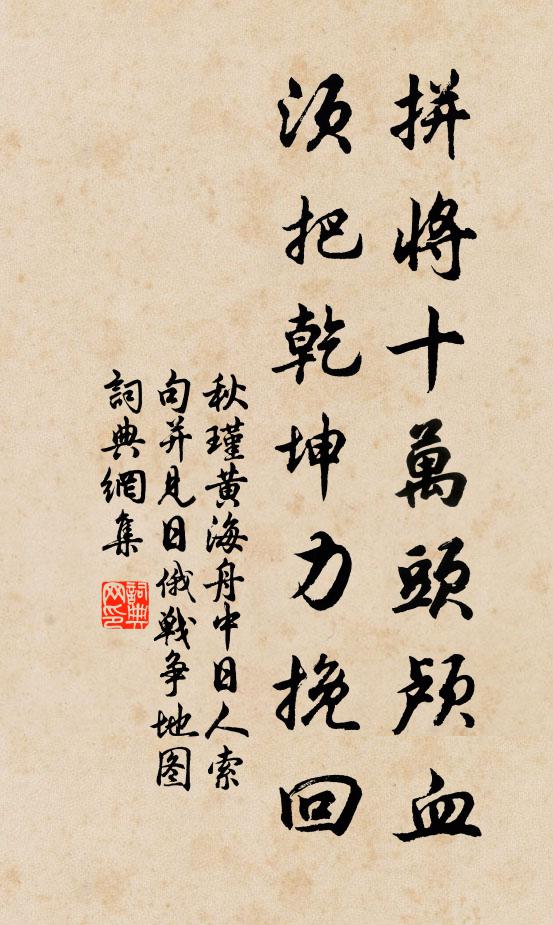 拼將十萬頭顱血
須把乾坤力挽回
秋瑾黄海舟中日人索
句并見日俄戰争地图
詞典網集
詞典网印